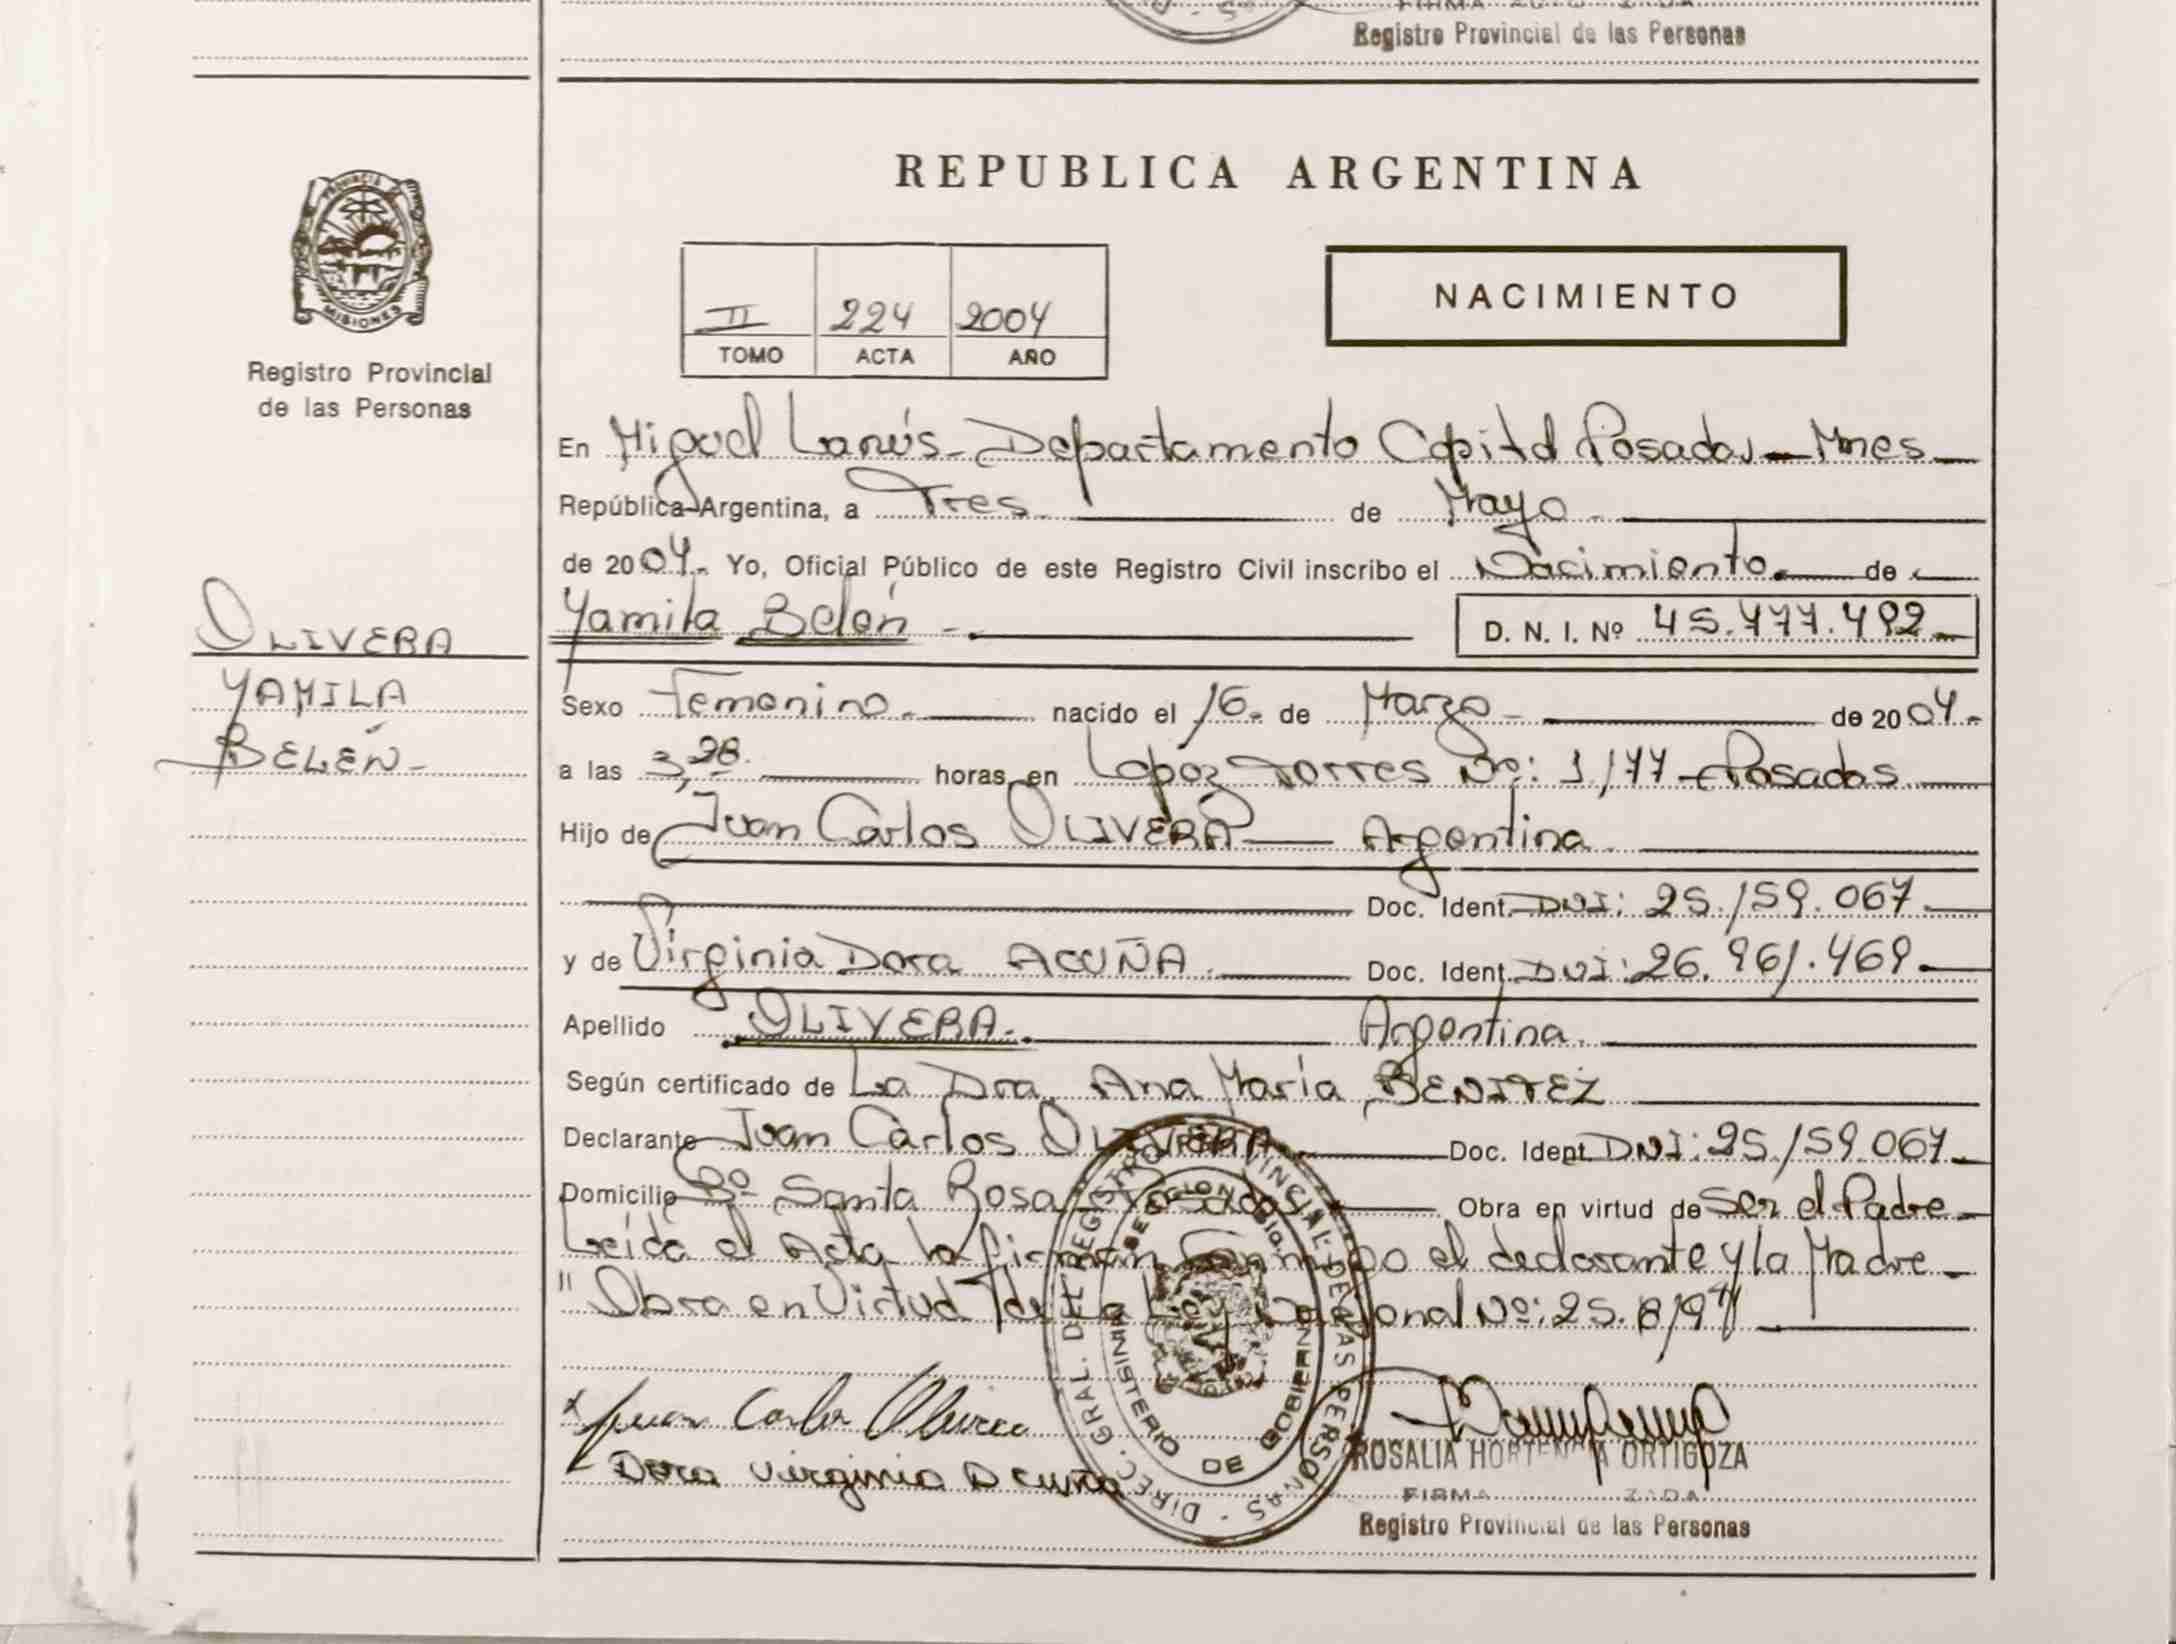 Registro Provincial de las Personas
REPUBLICA ARGENTINA
PROVINCIA
MISIONES
Registro Provincial
de las Personas
II 224 2004
TOMO ACTA AÑO
NACIMIENTO
En Miguel Lanús - Departamento Capital Posadas - Mnes
República Argentina, a Tres de Mayo
de 2004. Yo, Oficial Público de este Registro Civil inscribo el Nacimiento de
Yamila Belén - D. N. I. Nº 45.477.492
OLIVERA
YAMILA
BELÉN -
Sexo Femenino nacido el 16 de Marzo de 2004.
a las 3,28 horas en Lopez Torres Nº: 1177 - Posadas
Hijo de Juan Carlos OLIVERA Argentina
Doc. Ident. DNI: 25.159.067
y de Virginia Dora ACUÑA Doc. Ident. DNI: 26.961.469
Apellido OLIVERA. Argentina
Según certificado de La Dra. Ana María BENITEZ
Declarante Juan Carlos OLIVERA Doc. Ident. DNI: 25.159.067
Domicilio Bº Santa Rosa Posadas Obra en virtud de Ser el Padre
Leída el Acta la firman Conmigo el declarante y la Madre
"Obra en Virtud de la Ley Nacional Nº: 25.819"
Juan Carlos Olivera
Dora Virginia Acuña
DIREC. GRAL. DEL REGISTRO PROVINCIAL DE LAS PERSONAS
MINISTERIO DE GOBIERNO
ROSALIA HORTENCIA ORTIGOZA
FIRMA
Registro Provincial de las Personas